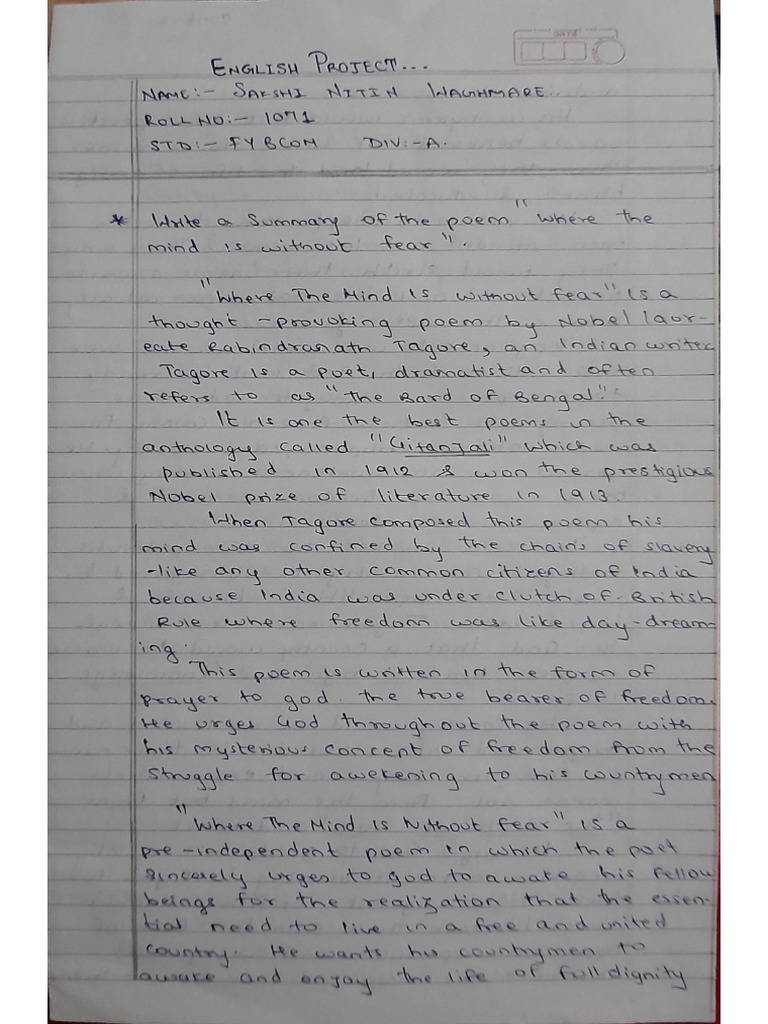 DATE
ENGLISH PROJECT...
NAME:- SAKSHI NITIN WAGHMARE
ROLL NO:- 1071
STD:- FYBCOM DIV:-A.
* Write a Summary of the poem "where the
mind is without fear".
"Where The Mind Is without fear" is a
thought -provoking poem by Nobel laur-
eate Rabindranath Tagore, an Indian writer
Tagore is a poet, dramatist and often
refers to as "the Bard of Bengal".
It is one the best poems in the
anthology called "Gitanjali" which was
published in 1912 & won the prestigious
Nobel prize of literature in 1913.
When Tagore composed this poem his
mind was confined by the chains of slavery
-like any other common citizens of India
because India was under clutch of British
Rule where freedom was like day-dream-
ing.
This poem is written in the form of
prayer to god. the true bearer of freedom.
He urges God throughout the poem with
his mysterious concept of freedom from the
struggle for awekening to his countrymen
"Where The Mind Is Without fear" is a
pre-independent poem in which the poet
sincerely urges to god to awake his fellow
beings for the realization that the essen-
tial need to live in a free and united
country. He wants his countrymen to
awake and enjoy the life of full dignity